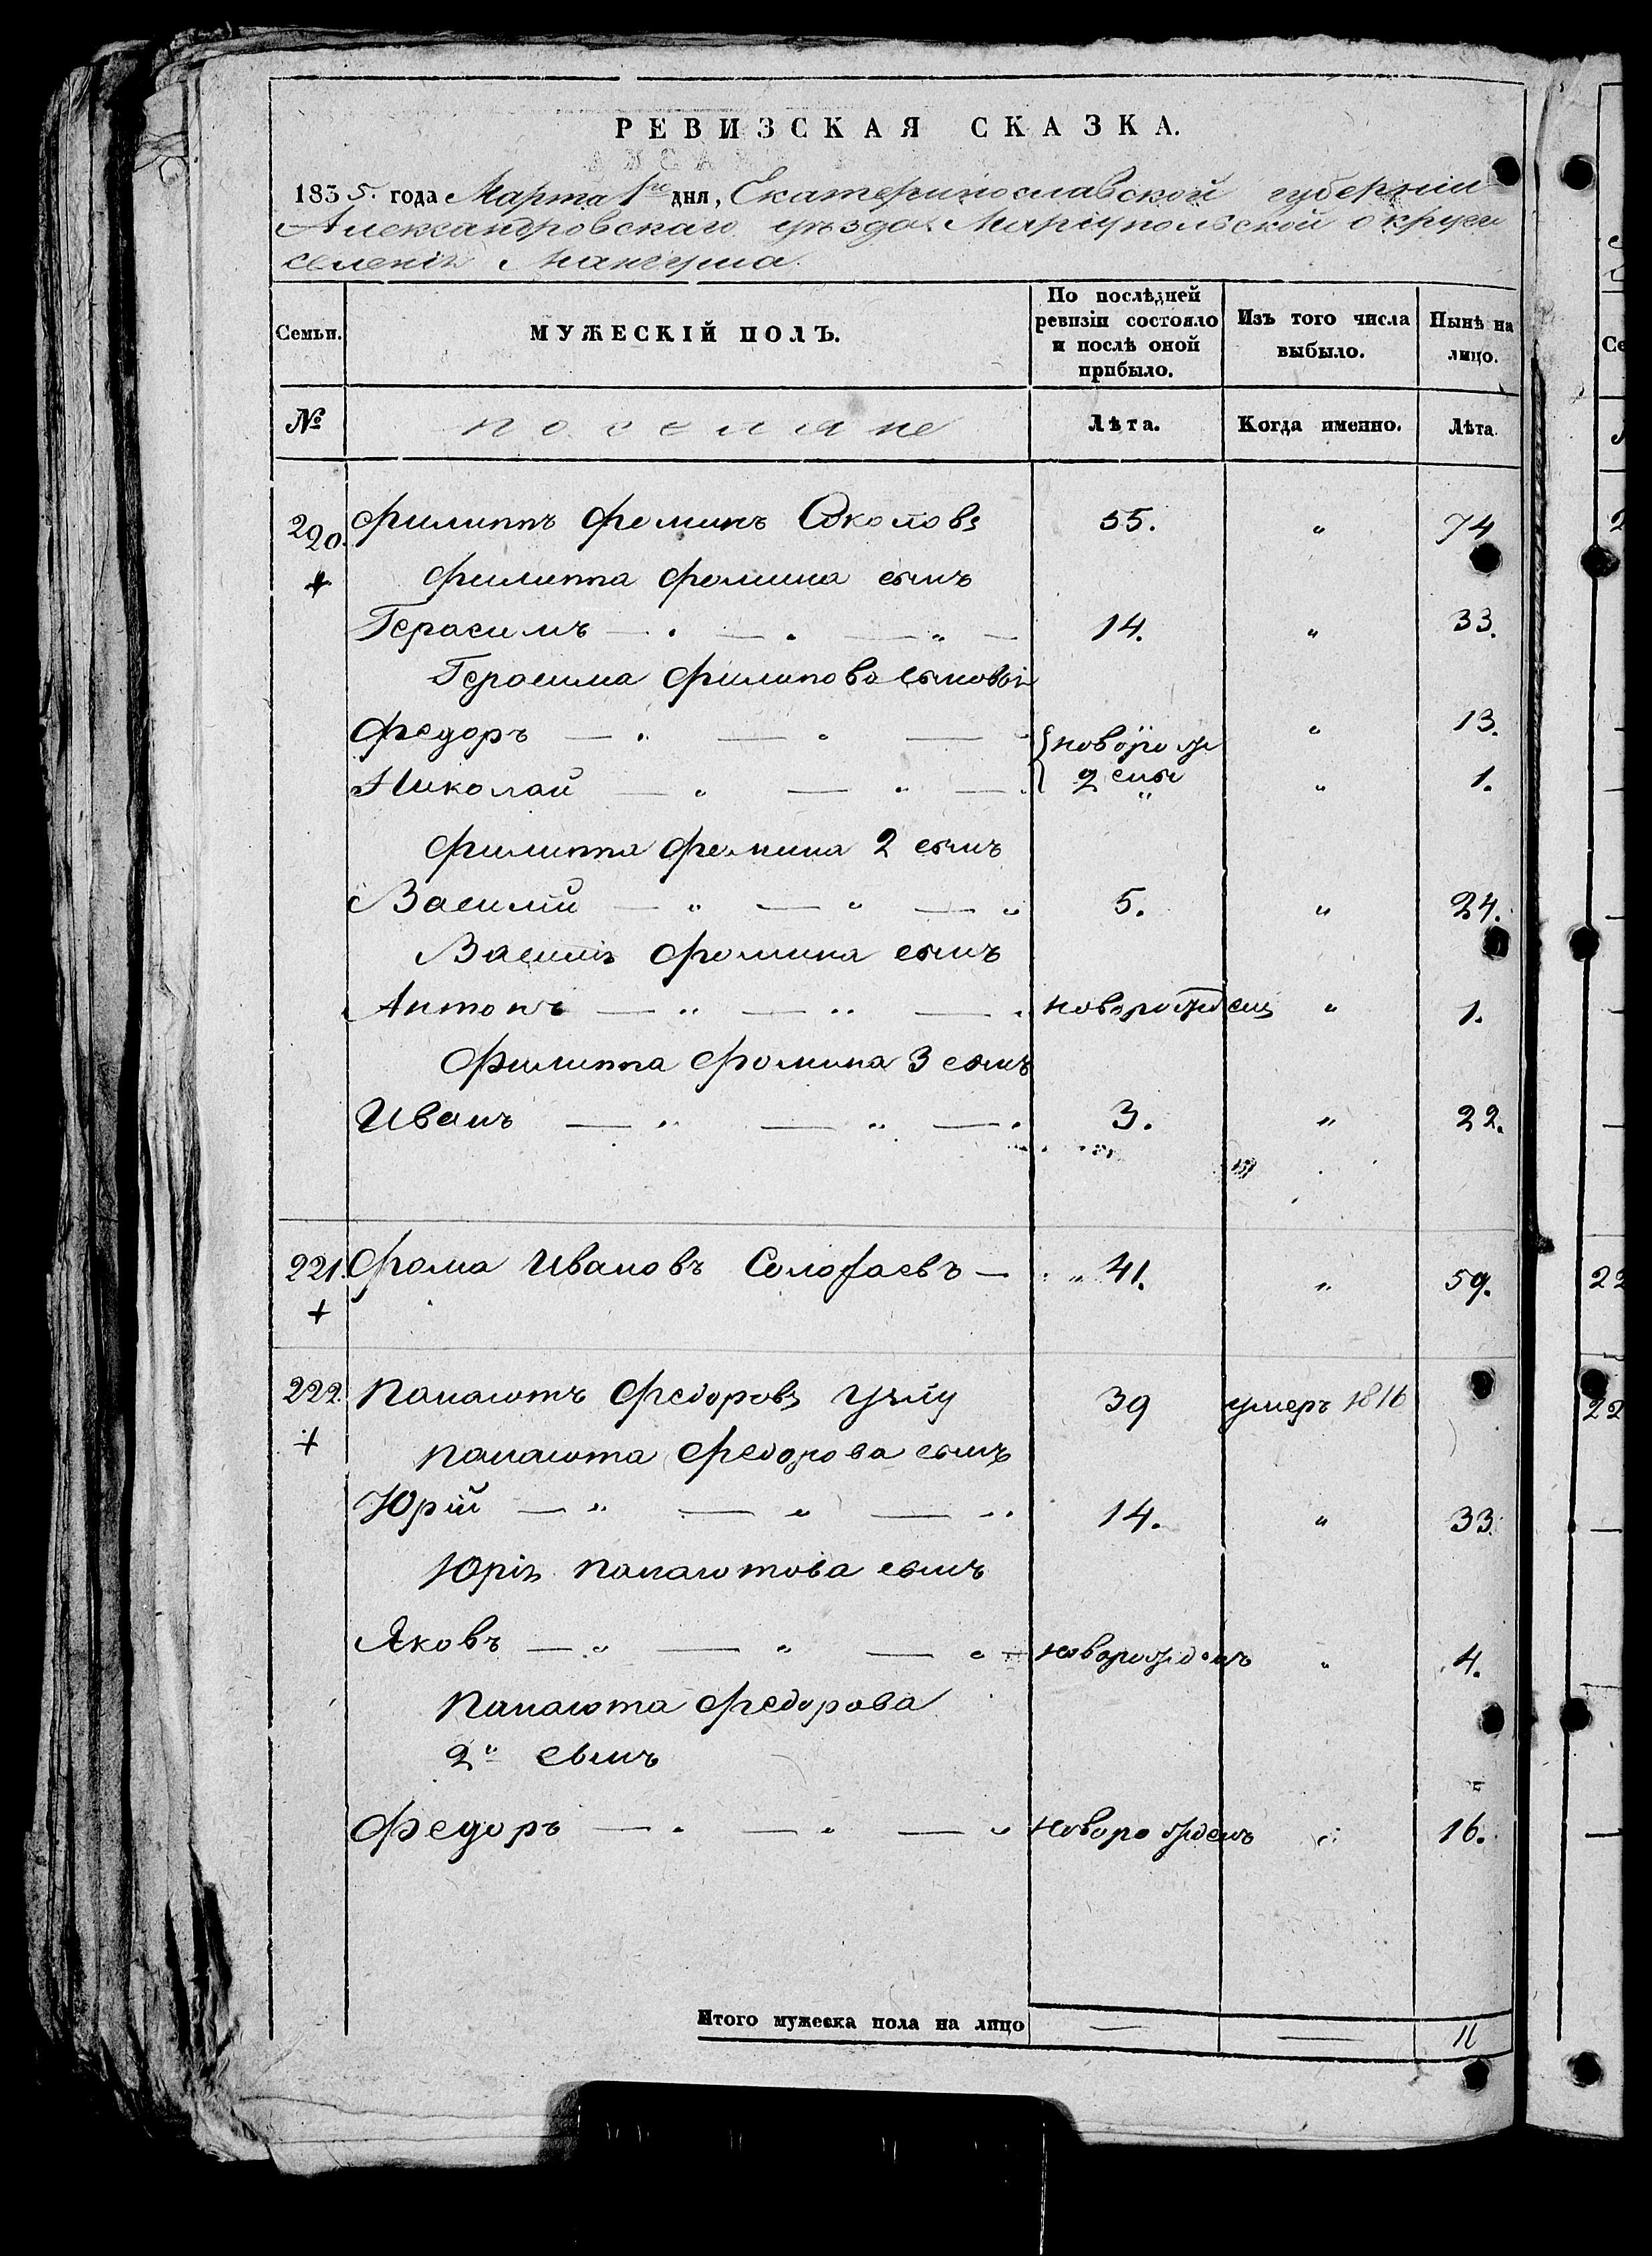 РЕВИЗСКАЯ СКАЗКА.
1835. года Марта 1го дня, Екатеринославской губерніи
Александровскаго уѣзда Маріупольской округи
селенія Мангуша.
Семьи. МУЖЕСКІЙ ПОЛЪ. По послѣдней ревизіи состояло и послѣ оной прибыло. Изъ того числа выбыло. Нынѣ на лицо.
№ поселяне Лѣта. Когда именно. Лѣта.
220. Филиппъ Фоминъ 55. " 74
+ Филиппа Фомина сынъ
Герасимъ — " — " — " — 14. " 33.
Герасима Филипова сыновья
Федоръ — " — " — { новорож " 13.
Николай — " — " — { " 1.
Филиппа Фомина 2 сынъ
Василій — " — " — " 5. " 24.
Василія Фомина сынъ
Антонъ — " — " — новорожденъ " 1.
Филиппа Фомина 3 сынъ
Иванъ — " — " — " 3. " 22.
221. Фома Ивановъ — " 41. " 59.
+
222. Панаютъ Федоровъ 39 умеръ 1816
+ Панаюта Федорова сынъ
Юрій — " — " — " 14. " 33.
Юрія Панаютова сынъ
Яковъ — " — " — " новорожденъ " 4.
Панаюта Федорова
2й сынъ
Федоръ — " — " — " новорожденъ " 16.
Итого мужеска пола на лицо — — 11